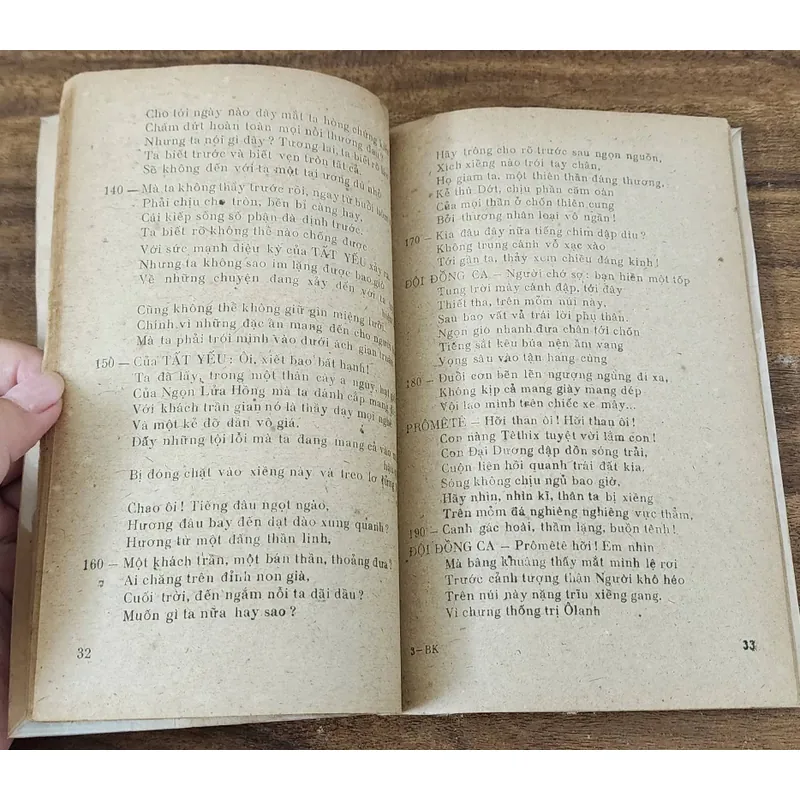 Cho tới ngày nào đây mắt ta hòng chứng
Chấm dứt hoàn toàn mọi nỗi thương đau?
Nhưng ta nói gì đây? Tương lai, ta biết rõ
Ta biết trước và biết vẹn tròn tất cả.
Sẽ không đến với ta một tai ương dù nhỏ
140 — Mà ta không thấy trước rồi, ngay từ buổi
Phải chịu cho tròn, bền bỉ càng hay,
Cái kiếp sống số phận đã định trước.
Ta biết rõ không thể nào chống được
Với sức mạnh diệu kỳ của TẤT YẾU xảy ra
Nhưng ta không sao im lặng được bao giờ
Về những chuyện đang xảy đến với ta
Cũng không thể không giữ gìn miệng lưỡi.
Chính vì những đặc ân mang đến cho người
Mà ta phải trói mình vào dưới ách gian truân
150 — Của TẤT YẾU: Ôi, xiết bao bất hạnh!
Ta đã lấy, trong một thân cây
Của Ngọn Lửa Hồng mà ta đánh cắp mang
Với khách trần gian nó là thầy dạy mọi nghề
Và một kẻ đỡ đần vô giá.
Đấy những tội lỗi mà ta đang mang cả vào
Bị đóng chặt vào xiềng này và treo lơ lửng
Chao ôi! Tiếng đâu ngọt ngào,
Hương đâu bay đến dạt dào xung quanh?
Hương từ một đấng thần linh,
160 — Một khách trần, một bán thần, thoảng đưa!
Ai chăng trên đỉnh non già,
Cuối trời, đến ngắm nỗi ta dãi dầu?
Muốn gì ta nữa hay sao?
32
Hãy trông cho rõ trước sau ngọn nguồn,
Xích xiềng nào trói tay chân,
Họ giam ta, một thiên thần đáng thương,
Kẻ thù Dớt, chịu phần căm oán
Của mọi thần ở chốn thiên cung
Bởi thương nhân loại vô ngần!
170 — Kìa đâu đây nữa tiếng chim dập dìu?
Không trung cánh vỗ xạc xào
Tới gần ta, thảy xem chiều đáng kinh!
ĐỘI ĐỒNG CA — Người chớ sợ: bạn hiền một tốp
Tung trời mây cánh đập, tới đây
Thiết tha, trên mỏm núi này,
Sau bao vất vả trái lời phụ thân.
Ngọn gió nhanh đưa chân tới chốn
Tiếng sắt kêu búa nện âm vang
Vọng sâu vào tận hang cùng
180 — Đuổi cơn bẽn lẽn ngượng ngùng đi xa,
Không kịp cả mang giày mang dép
Vội lao mình trên chiếc xe mây...
PRÔMÊTÊ — Hỡi than ôi! Hỡi than ôi!
Con nàng Têthix tuyệt vời lắm con!
Con Đại Dương dập dồn sóng trải,
Cuộn liên hồi quanh trái đất kia,
Sóng không chịu ngủ bao giờ,
Hãy nhìn, nhìn kĩ, thân ta bị xiềng
Trên mỏm đá nghiêng nghiêng vực thẳm,
190 — Canh gác hoài, thầm lặng, buồn tênh!
ĐỘI ĐỒNG CA — Prômêtê hỡi! Em nhìn
Mà bâng khuâng thấy mắt mình lệ rơi
Trước cảnh tượng thân Người khô héo
Trên núi này nặng trĩu xiềng gang.
Vì chưng thống trị Ôlanh
3 — BK
33